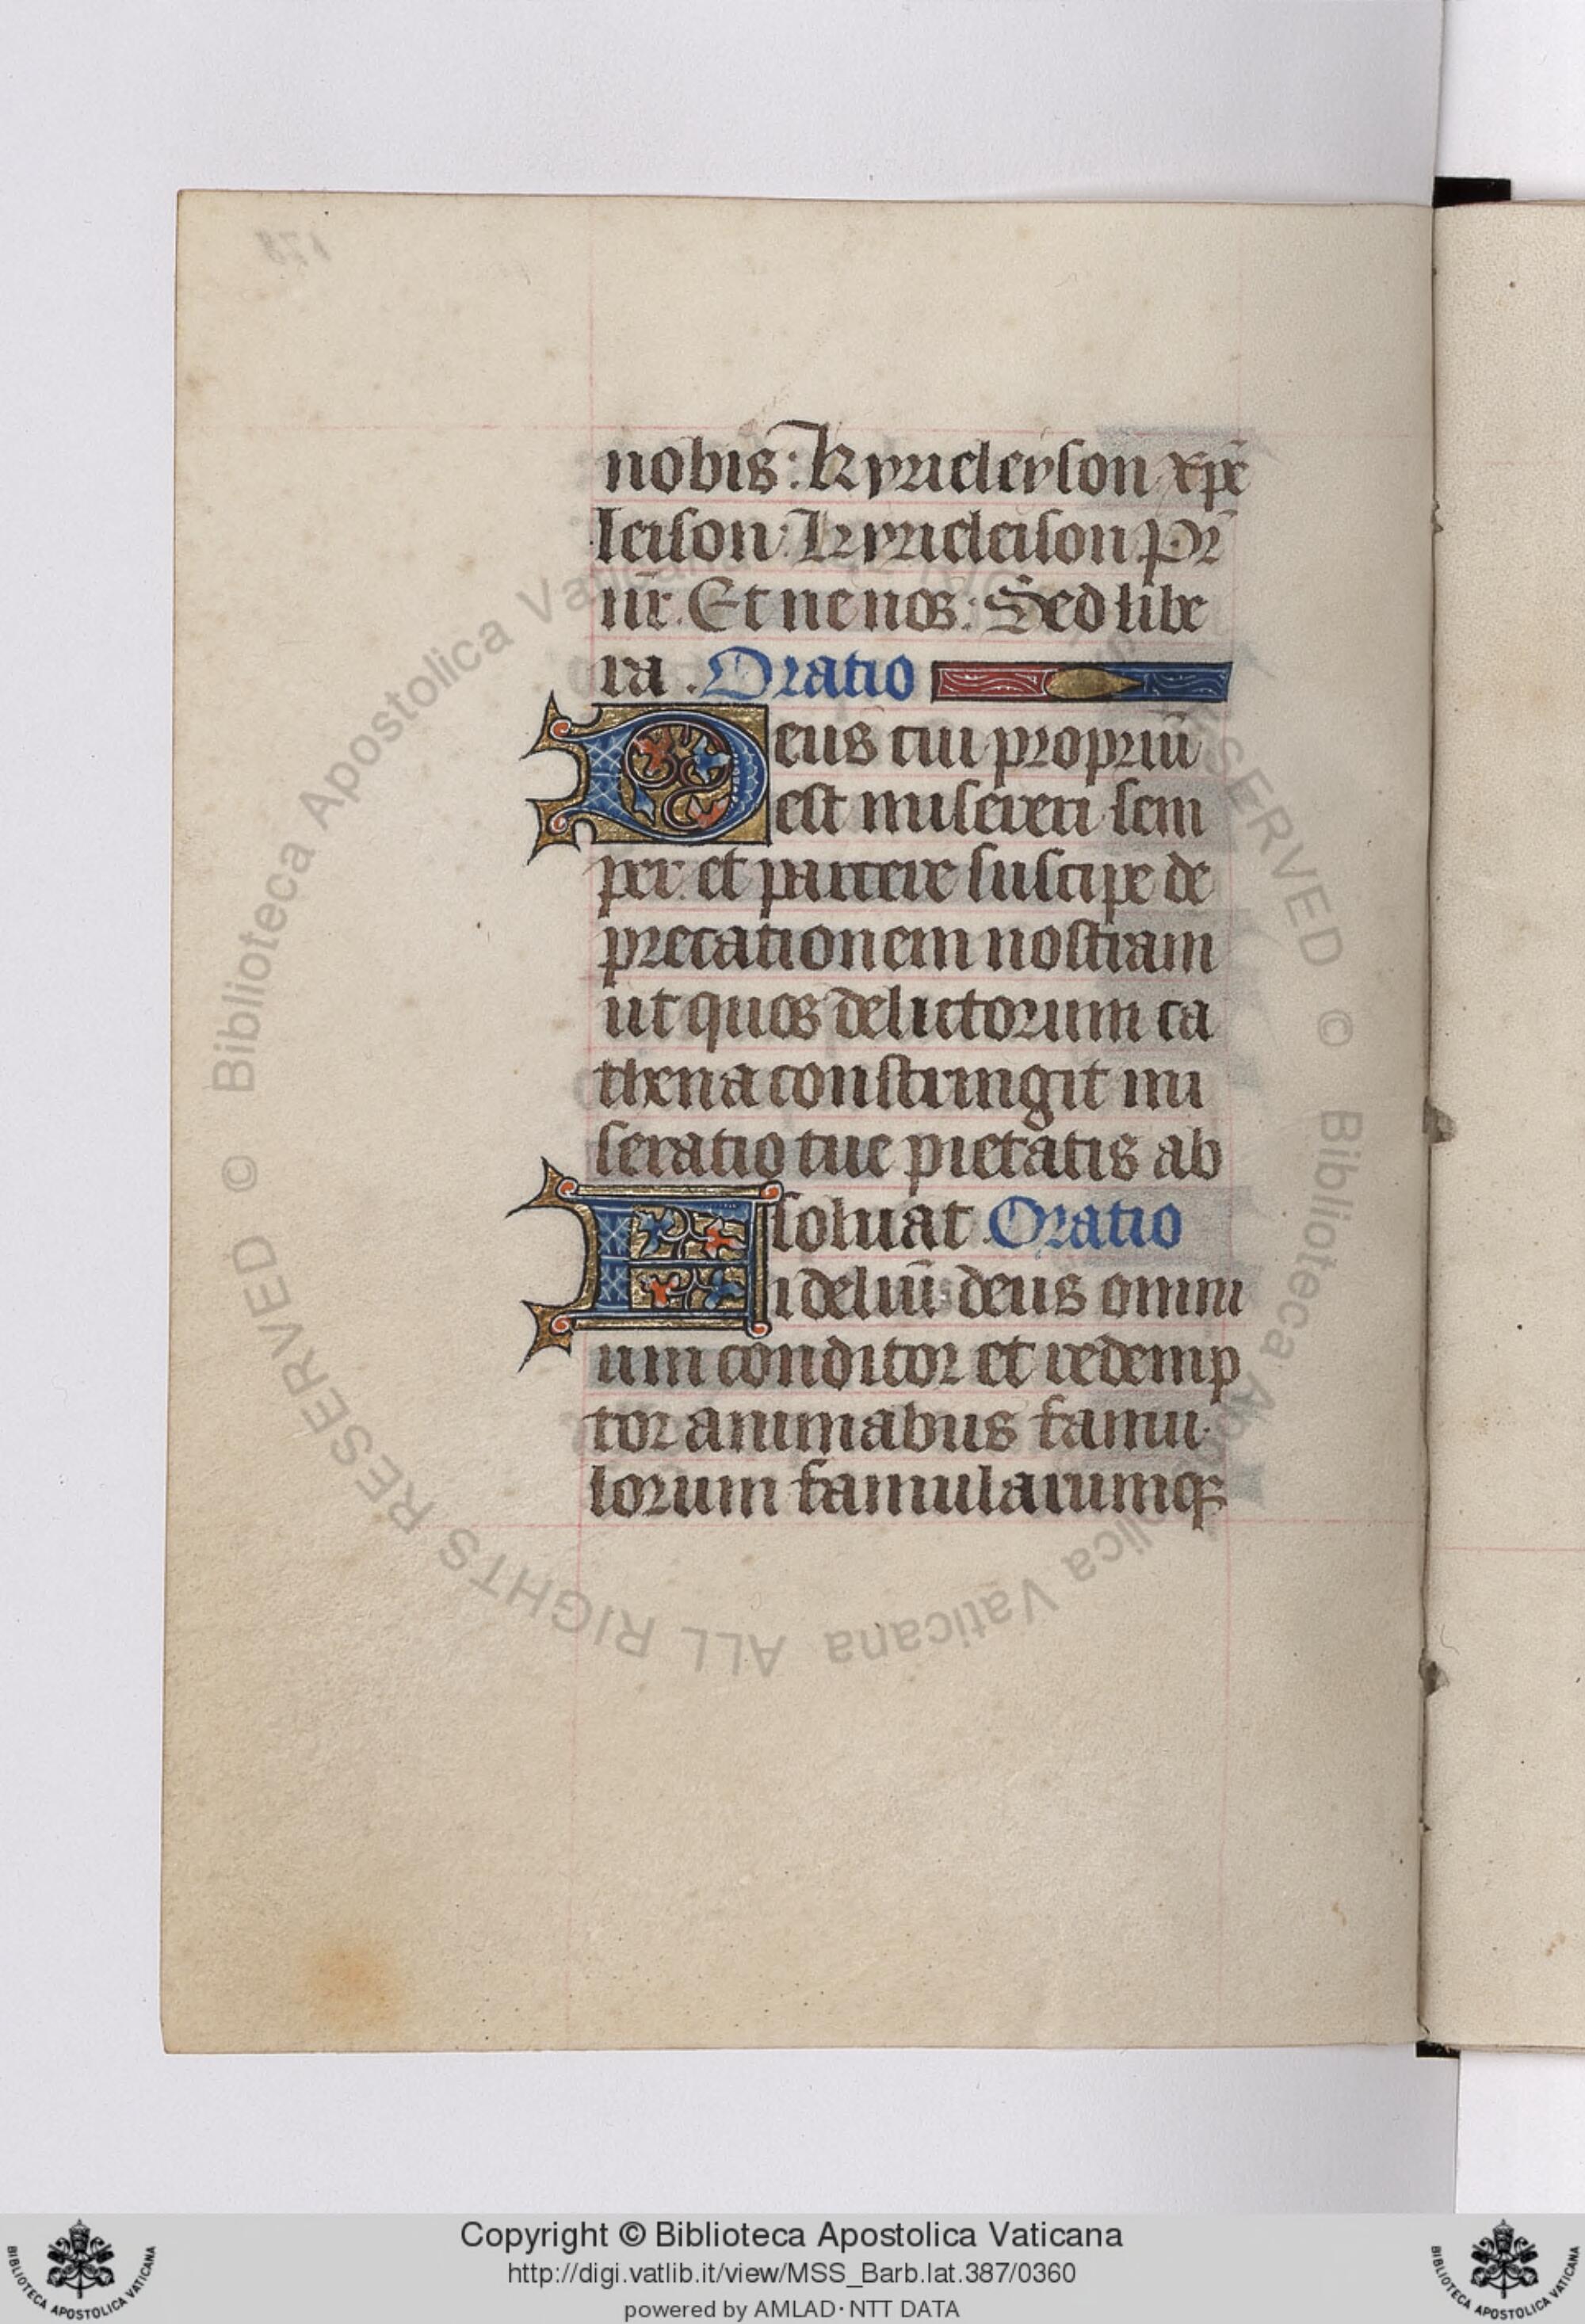 nobis: kyrieleyson xp̄e
leison. kyrieleison Pr̄
nr̄. Et ne nos: Sed libe
ra. Oratio
Deus cui propriū
est misereri sem
per. et parcere suscipe de
precationem nostram
ut quos delictorum ca
thena constringit mi
seratio tue pietatis ab
soluat Oratio
Fideliū deus omni
um conditor et redemp
tor animabus famu
lorum famularumqȝ
© Biblioteca Apostolica Vaticana ALL RIGHTS RESERVED © Biblioteca Apostolica Vaticana ALL RIGHTS RESERVED
Copyright © Biblioteca Apostolica Vaticana
http://digi.vatlib.it/view/MSS_Barb.lat.387/0360
powered by AMLAD·NTT DATA
BIBLIOTECA APOSTOLICA VATICANA
BIBLIOTECA APOSTOLICA VATICANA